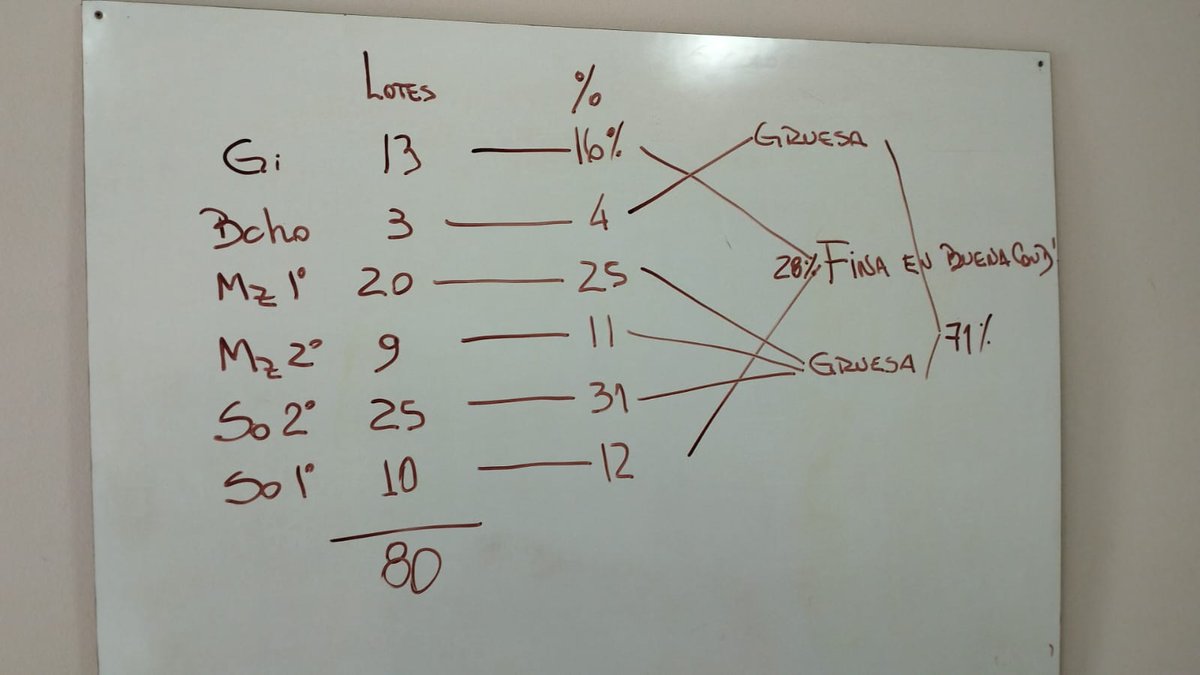 LOTES %
Gi 13 16% GRUESA
Bcho 3 4
Mz 1° 20 25 28% FINA EN BUENA COND'
Mz 2° 9 11 71%
So 2° 25 31 GRUESA
So 1° 10 12
80